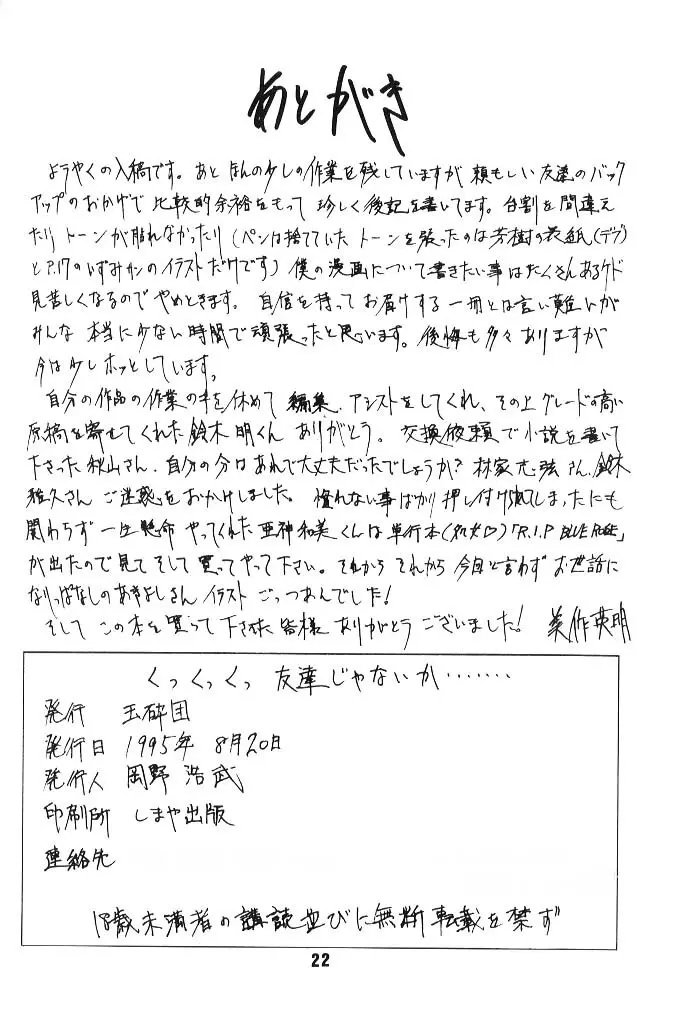 あとがき
ようやくの入稿です。あと ほんの少しの作業を残していますが 頼もしい友達のバック
アップのおかげで 比較的余裕をもって 珍しく後記を書いてます。台割を間違え
たり トーンが貼れなかったり(ペンは捨てていた トーンを張ったのは芳樹の表紙(デブ)
とP.17のいずみかのイラストだけです) 僕の漫画について書きたい事はたくさんあるケド
見苦しくなるのでやめときます。 自信を持ってお届けする一冊とは言い難いが
みんな 本当に少ない時間で頑張ったと思います。後悔も多々ありますが
今は少しホッとしています。
自分の作品の作業の手を休めて 編集、アシストをしてくれ、その上グレードの高い
原稿を寄せてくれた鈴木明くん ありがとう。 交換依頼で小説を書いて
下さった秋山さん、自分の分はあれで大丈夫だったでしょうか? 林家志弦さん、鈴木
雅久さん ご迷惑をおかけしました。 慣れない事ばかり押し付けられてしまったにも
関わらず一生懸命やってくれた亜神和美くんは単行本(処女♡)「R.I.P BLUE ROSE」
が出たので見てそして買ってやって下さい。それから それから 今回と言わずお世話に
なりっぱなしのあきよしさん イラスト ごっつあんでした!
そして この本を買って下さった皆様 ありがとうございました! 美作英明
くっくっくっ 友達じゃないか・・・・・・・
発行 玉砕団
発行日 1995年 8月20日
発行人 岡野 浩武
印刷所 しまや出版
連絡先
18歳未満者の講読並びに無断転載を禁ず
22